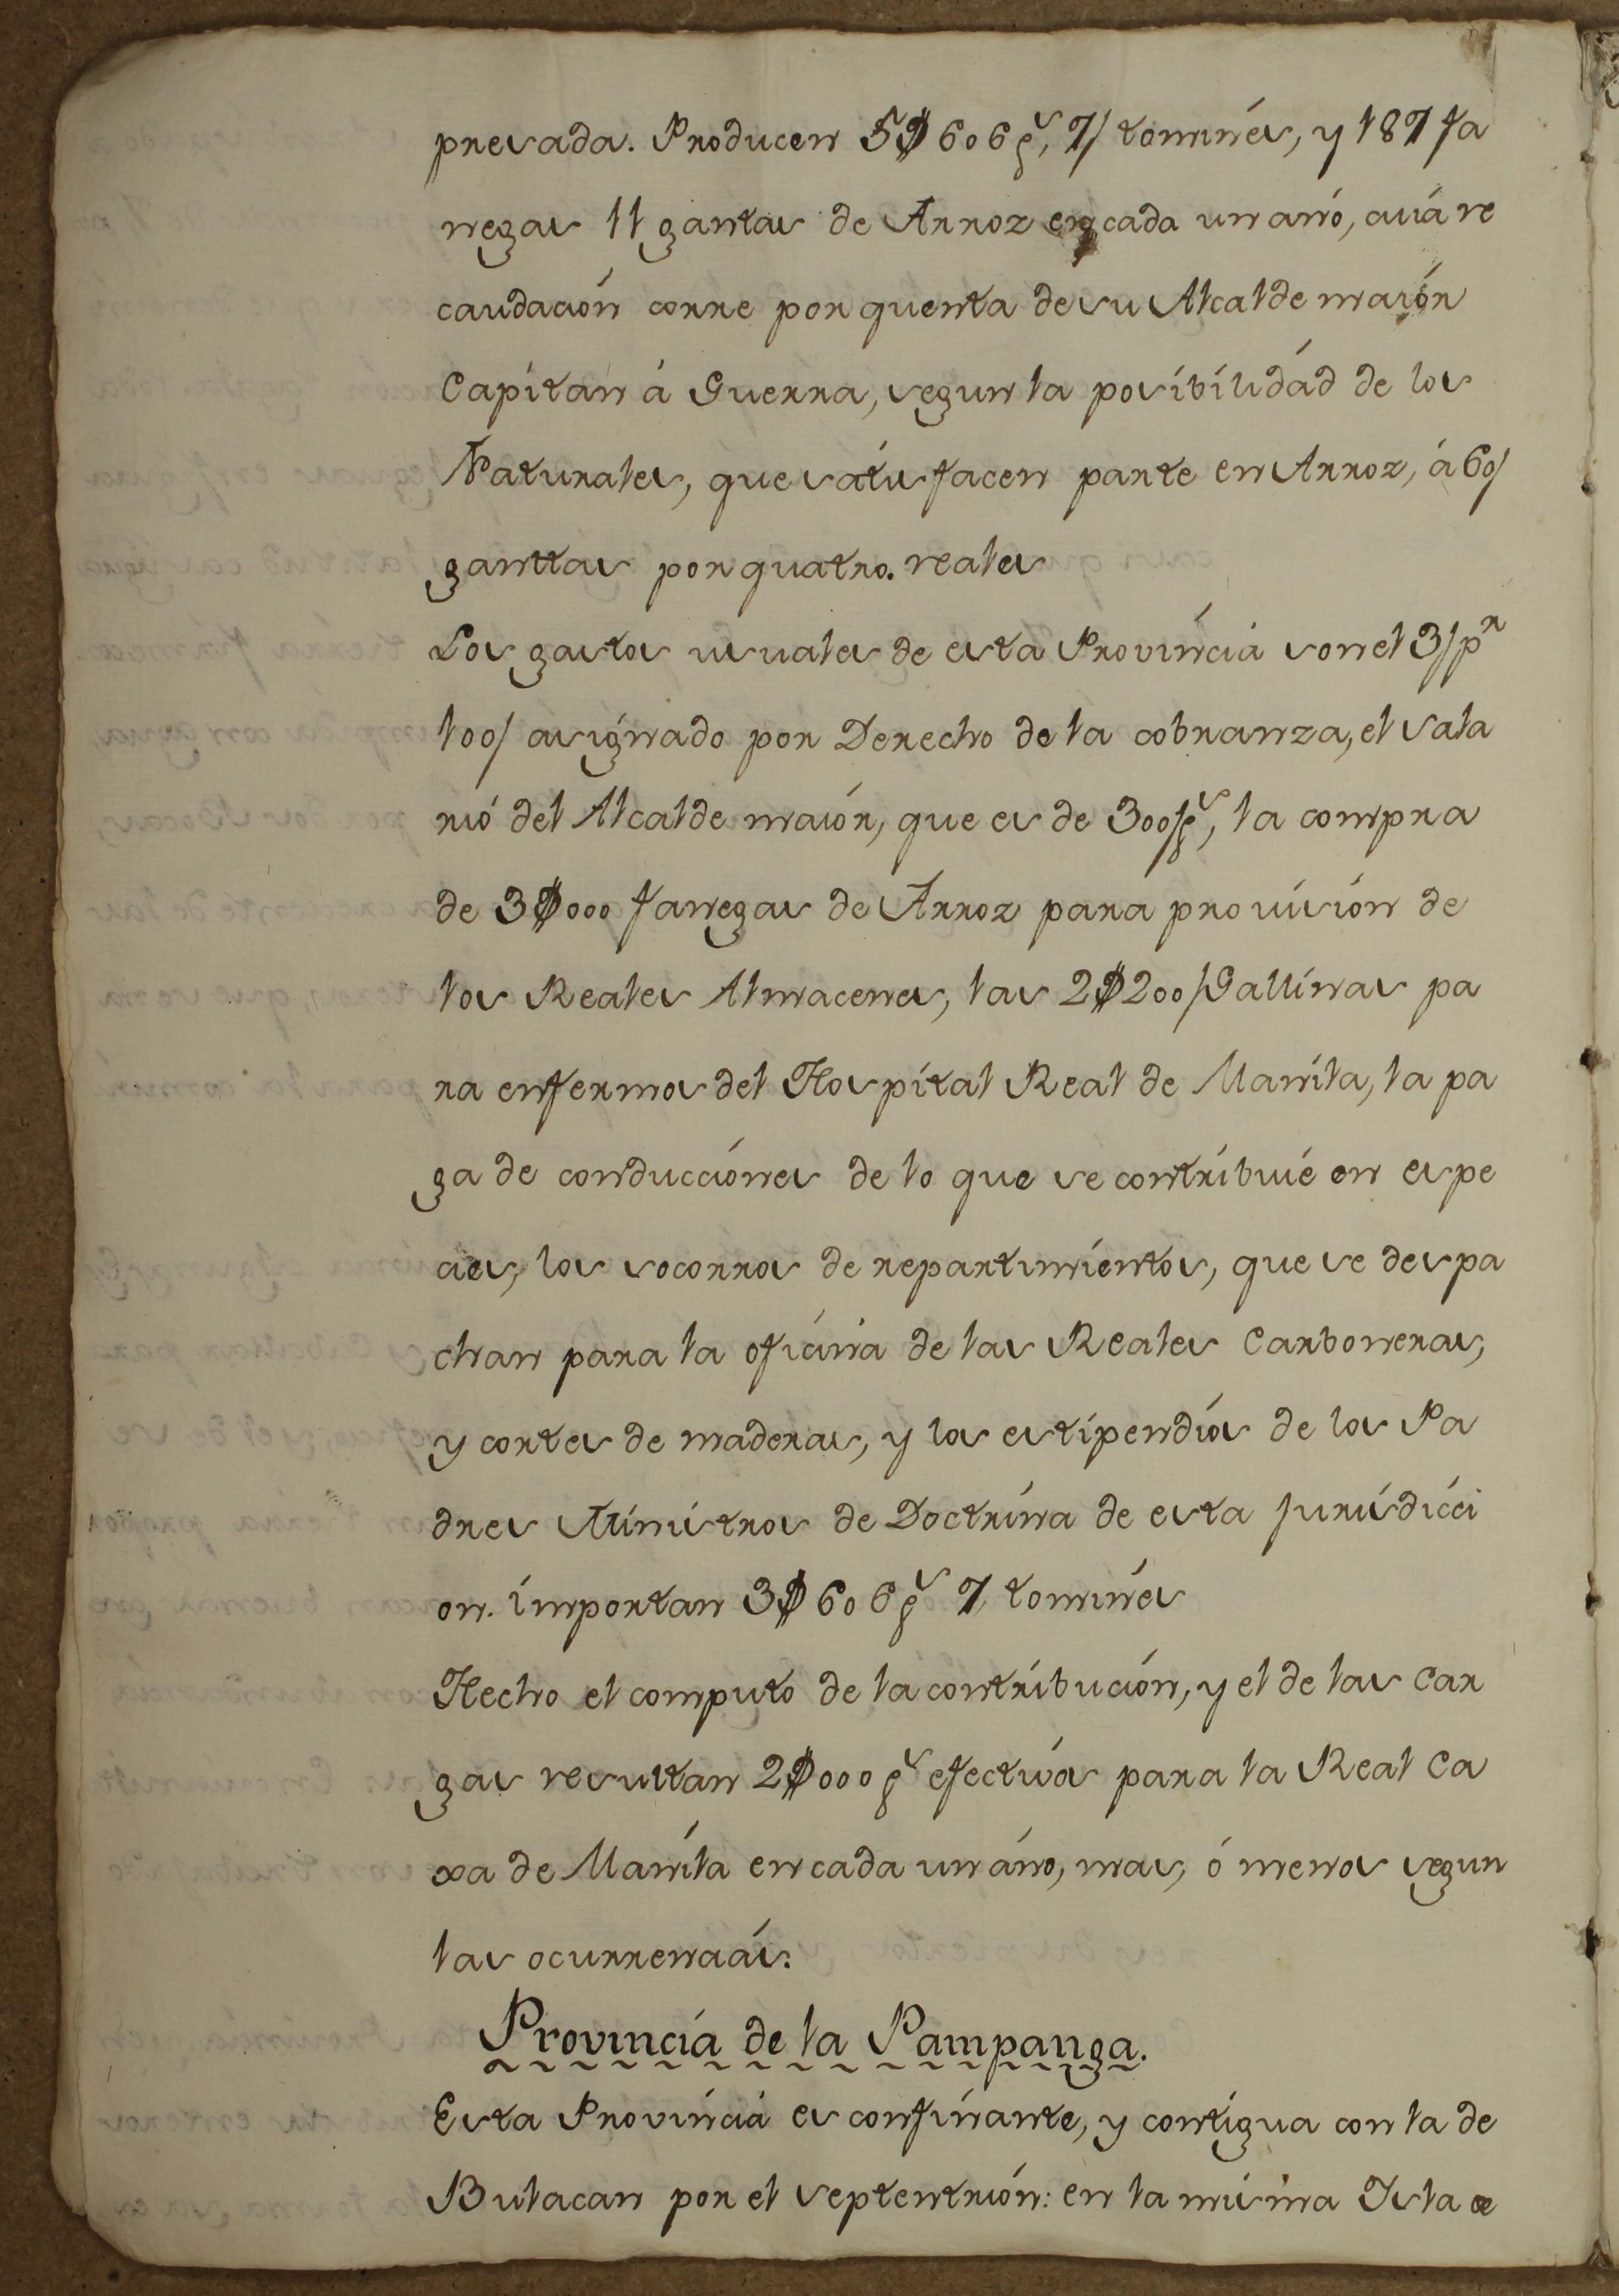 presada. Producen 5$606 p.s, 7/ tomines, y 187 fa
negas 11 gantas de Arroz en cada un año, cuia re
caudación corre por quenta de su Alcalde maiór
Capitan á Guerra, segun la posibilidád de los
Naturales, que satisfacen parte en Arroz, á 60/
ganttas por quatro. reales
Los gastos usuales de esta Provincia son el 3/ p.r
100/ asignado por Derecho de la cobranza, el sala
rió del Alcalde maiór, que es de 300/ p.s, la compra
de 3$000 fanegas de Arroz para provisión de
los Reales Almacenes, las 2$200/ Gallinas pa
ra enfermos del Hospital Real de Manila, la pa
ga de conducciónes de lo que se contribuié en espe
cies, los socorros de repartimientos, que se despa
chan para la oficina de las Reales Carboneras,
y cortes de maderas, y los estipendiós de los Pa
dres Ministros de Doctrina de esta jurisdicci
on. importan 3$606 p.s 7, tomines
Hecho el computo de la contribución, y el de las car
gas resultan 2$000 p.s efectivos para la Real Ca
xa de Manila en cada un año, mas, ó menos segun
las ocurrenciás.
Provincia de la Pampanga.
Esta Provincia es confinante, y contigua con la de
Bulacan por el septentrión: en la misma Isla de